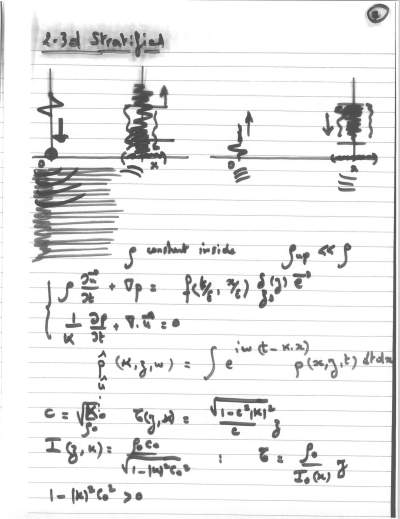 2.3d Stratified
0 x 0 x
ρ constant inside ρ_up << ρ
ρ ∂u/∂t + ∇p = f(t/ε, x/ε) δ(z) e
1/K ∂p/∂t + ∇·u = 0
p̂ (κ, z, ω) = ∫ e^{iω(t - κ·x)} p(x, z, t) dt dx
û
c = √(K/ρ₀) τ(z, κ) = √(1-c²|κ|²)/c z
I(z, κ) = ρ₀c₀/√(1-|κ|²c₀²) : τ = ρ₀/I₀(κ) z
1 - |κ|²c₀² > 0